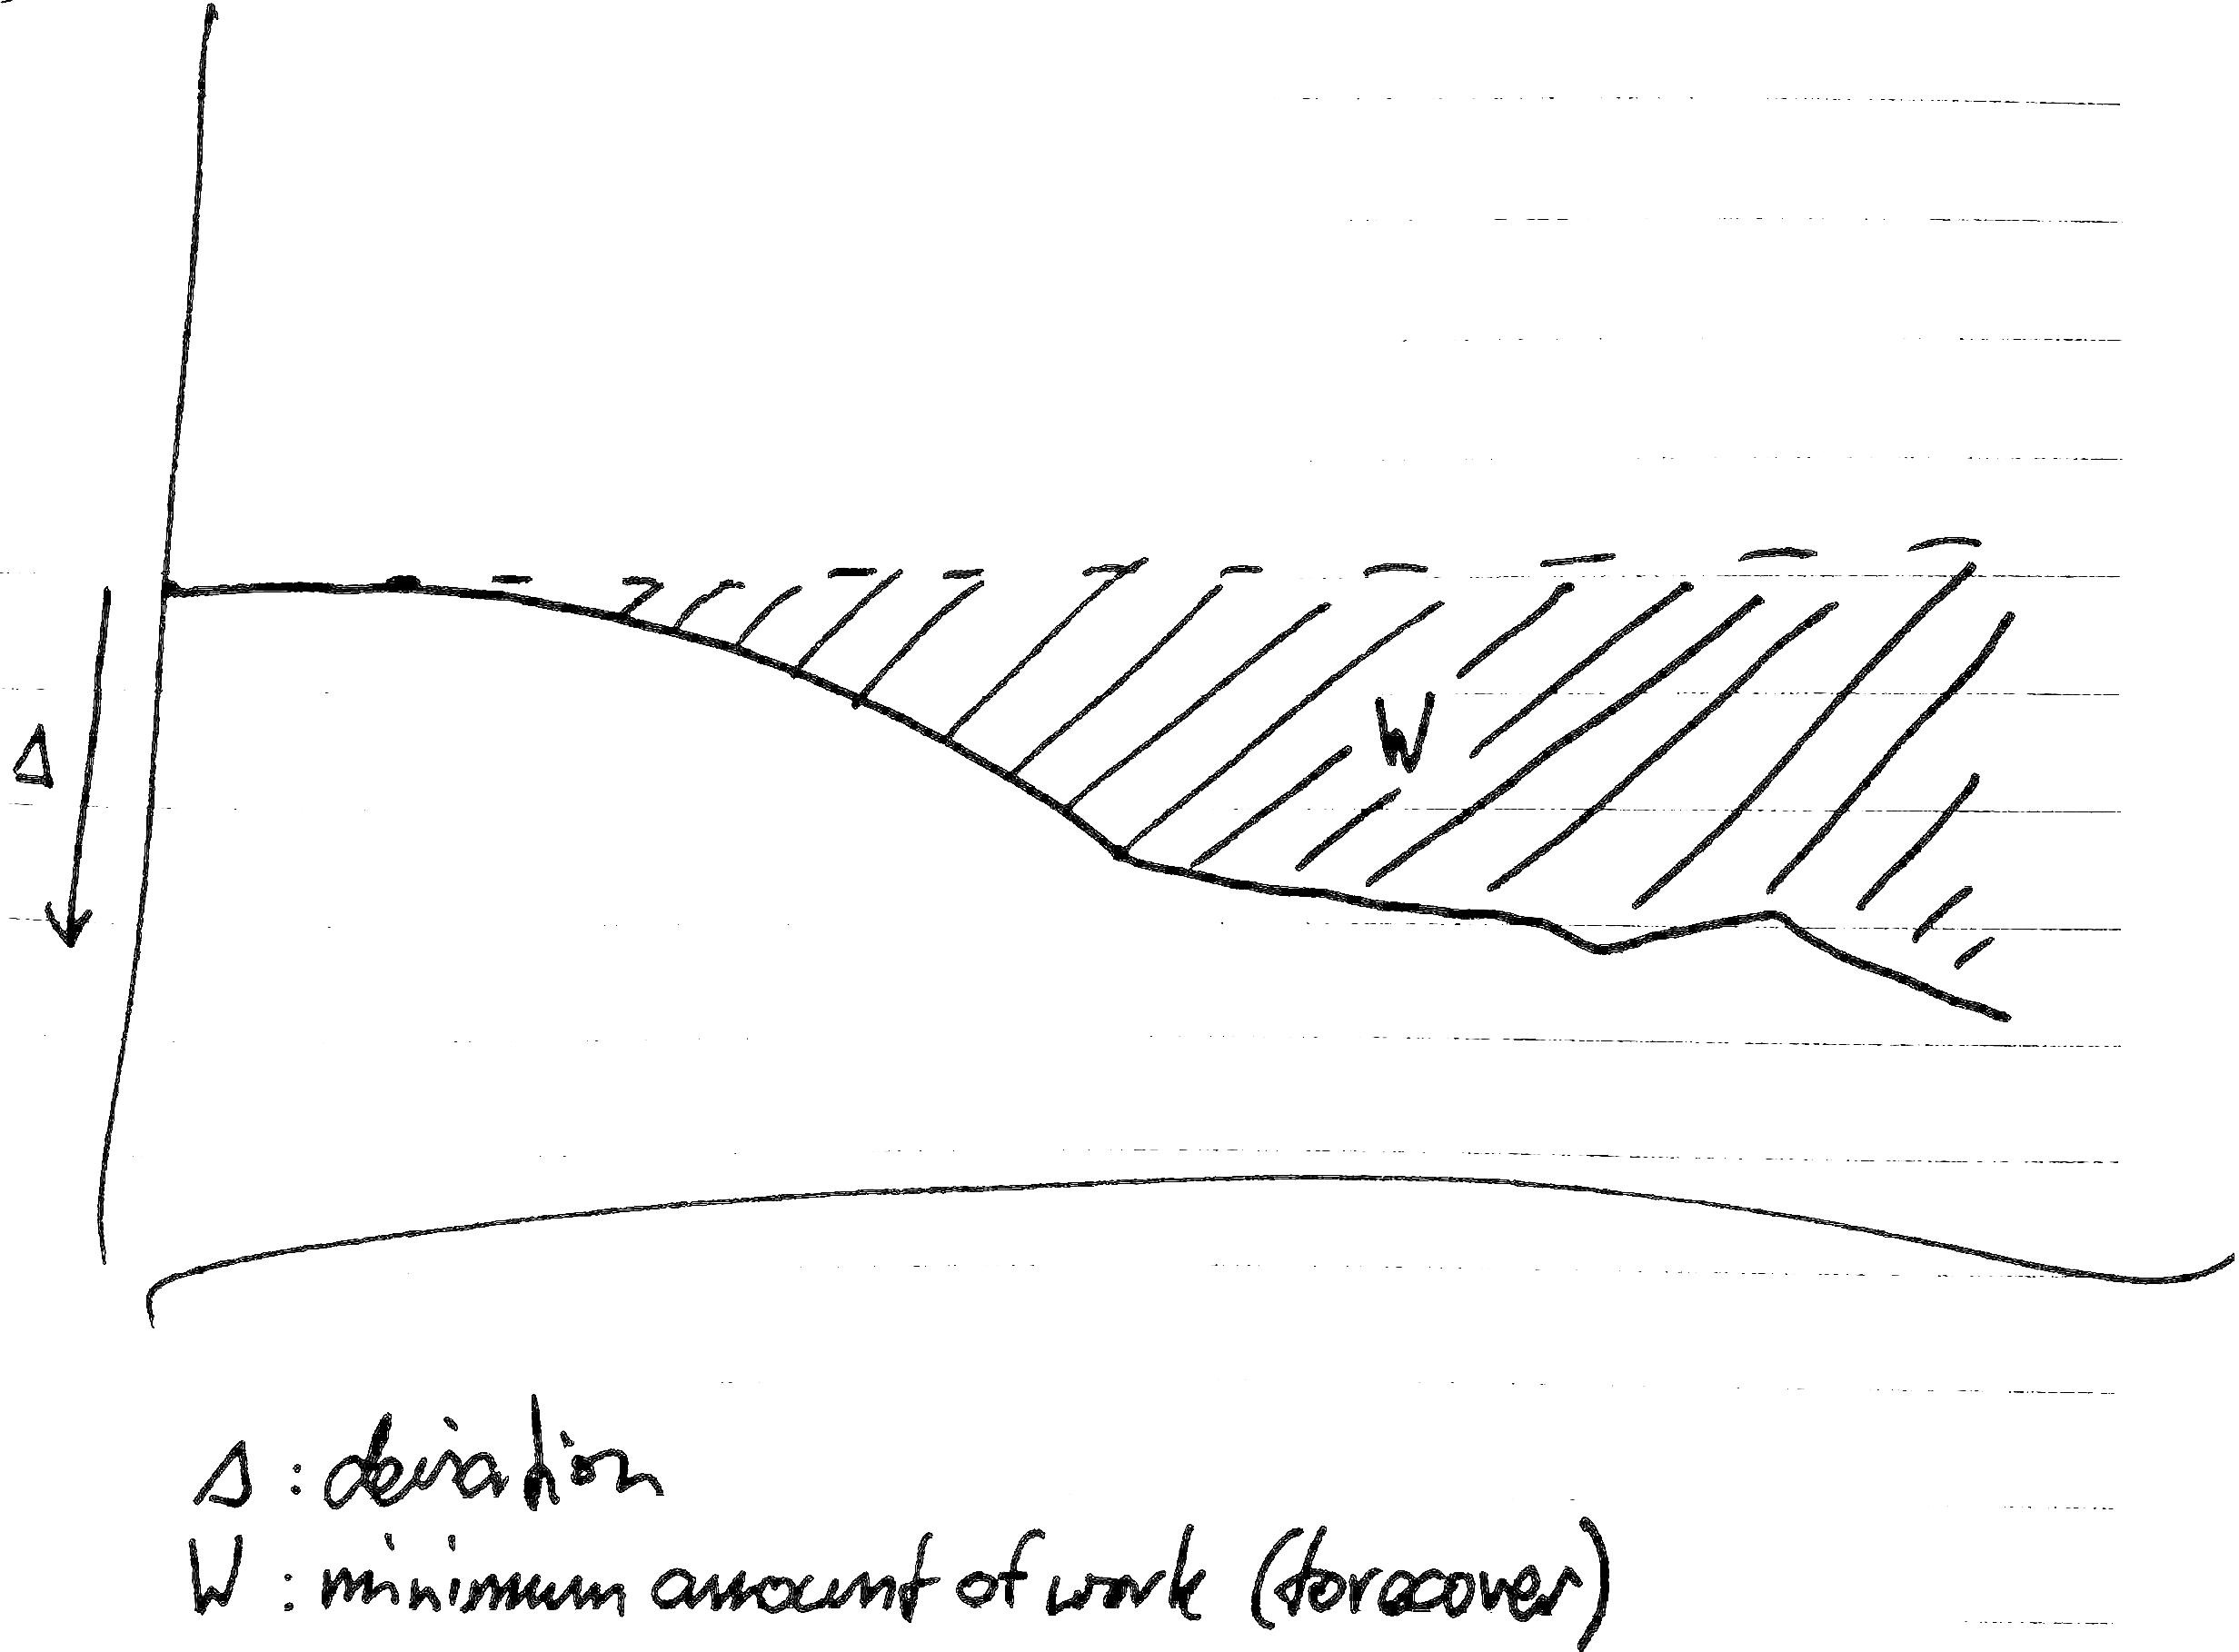 Δ
W
Δ : deviation
W : minimum amount of work (to recover)